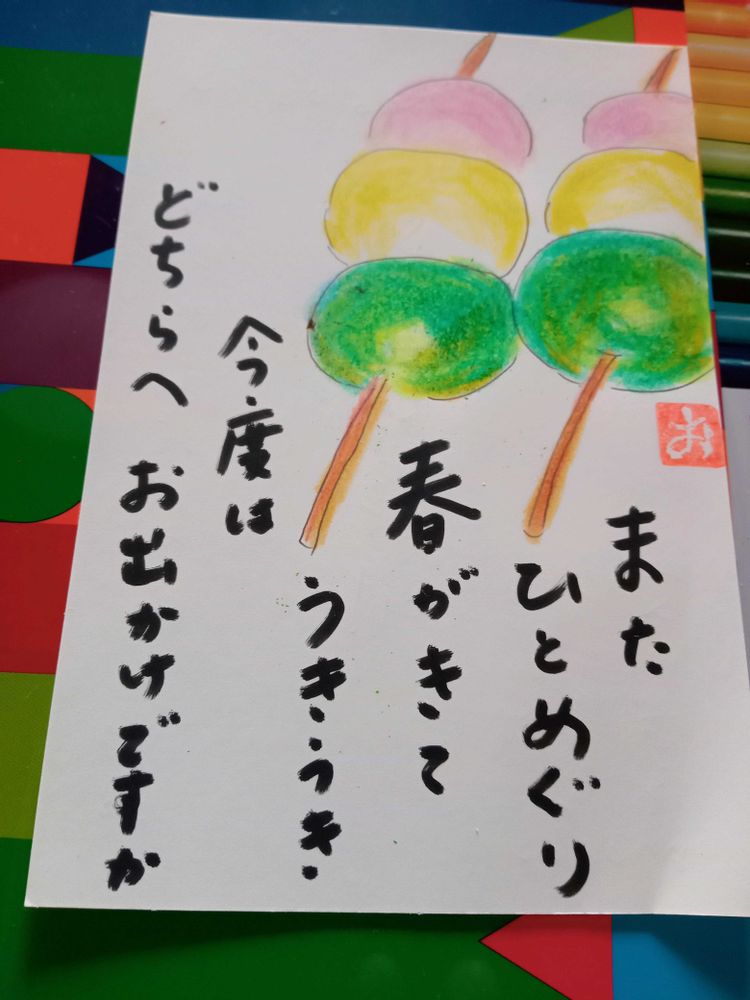 また
ひとめぐり
春がきて
うきうき
今度は
どちらへ お出かけですか
お